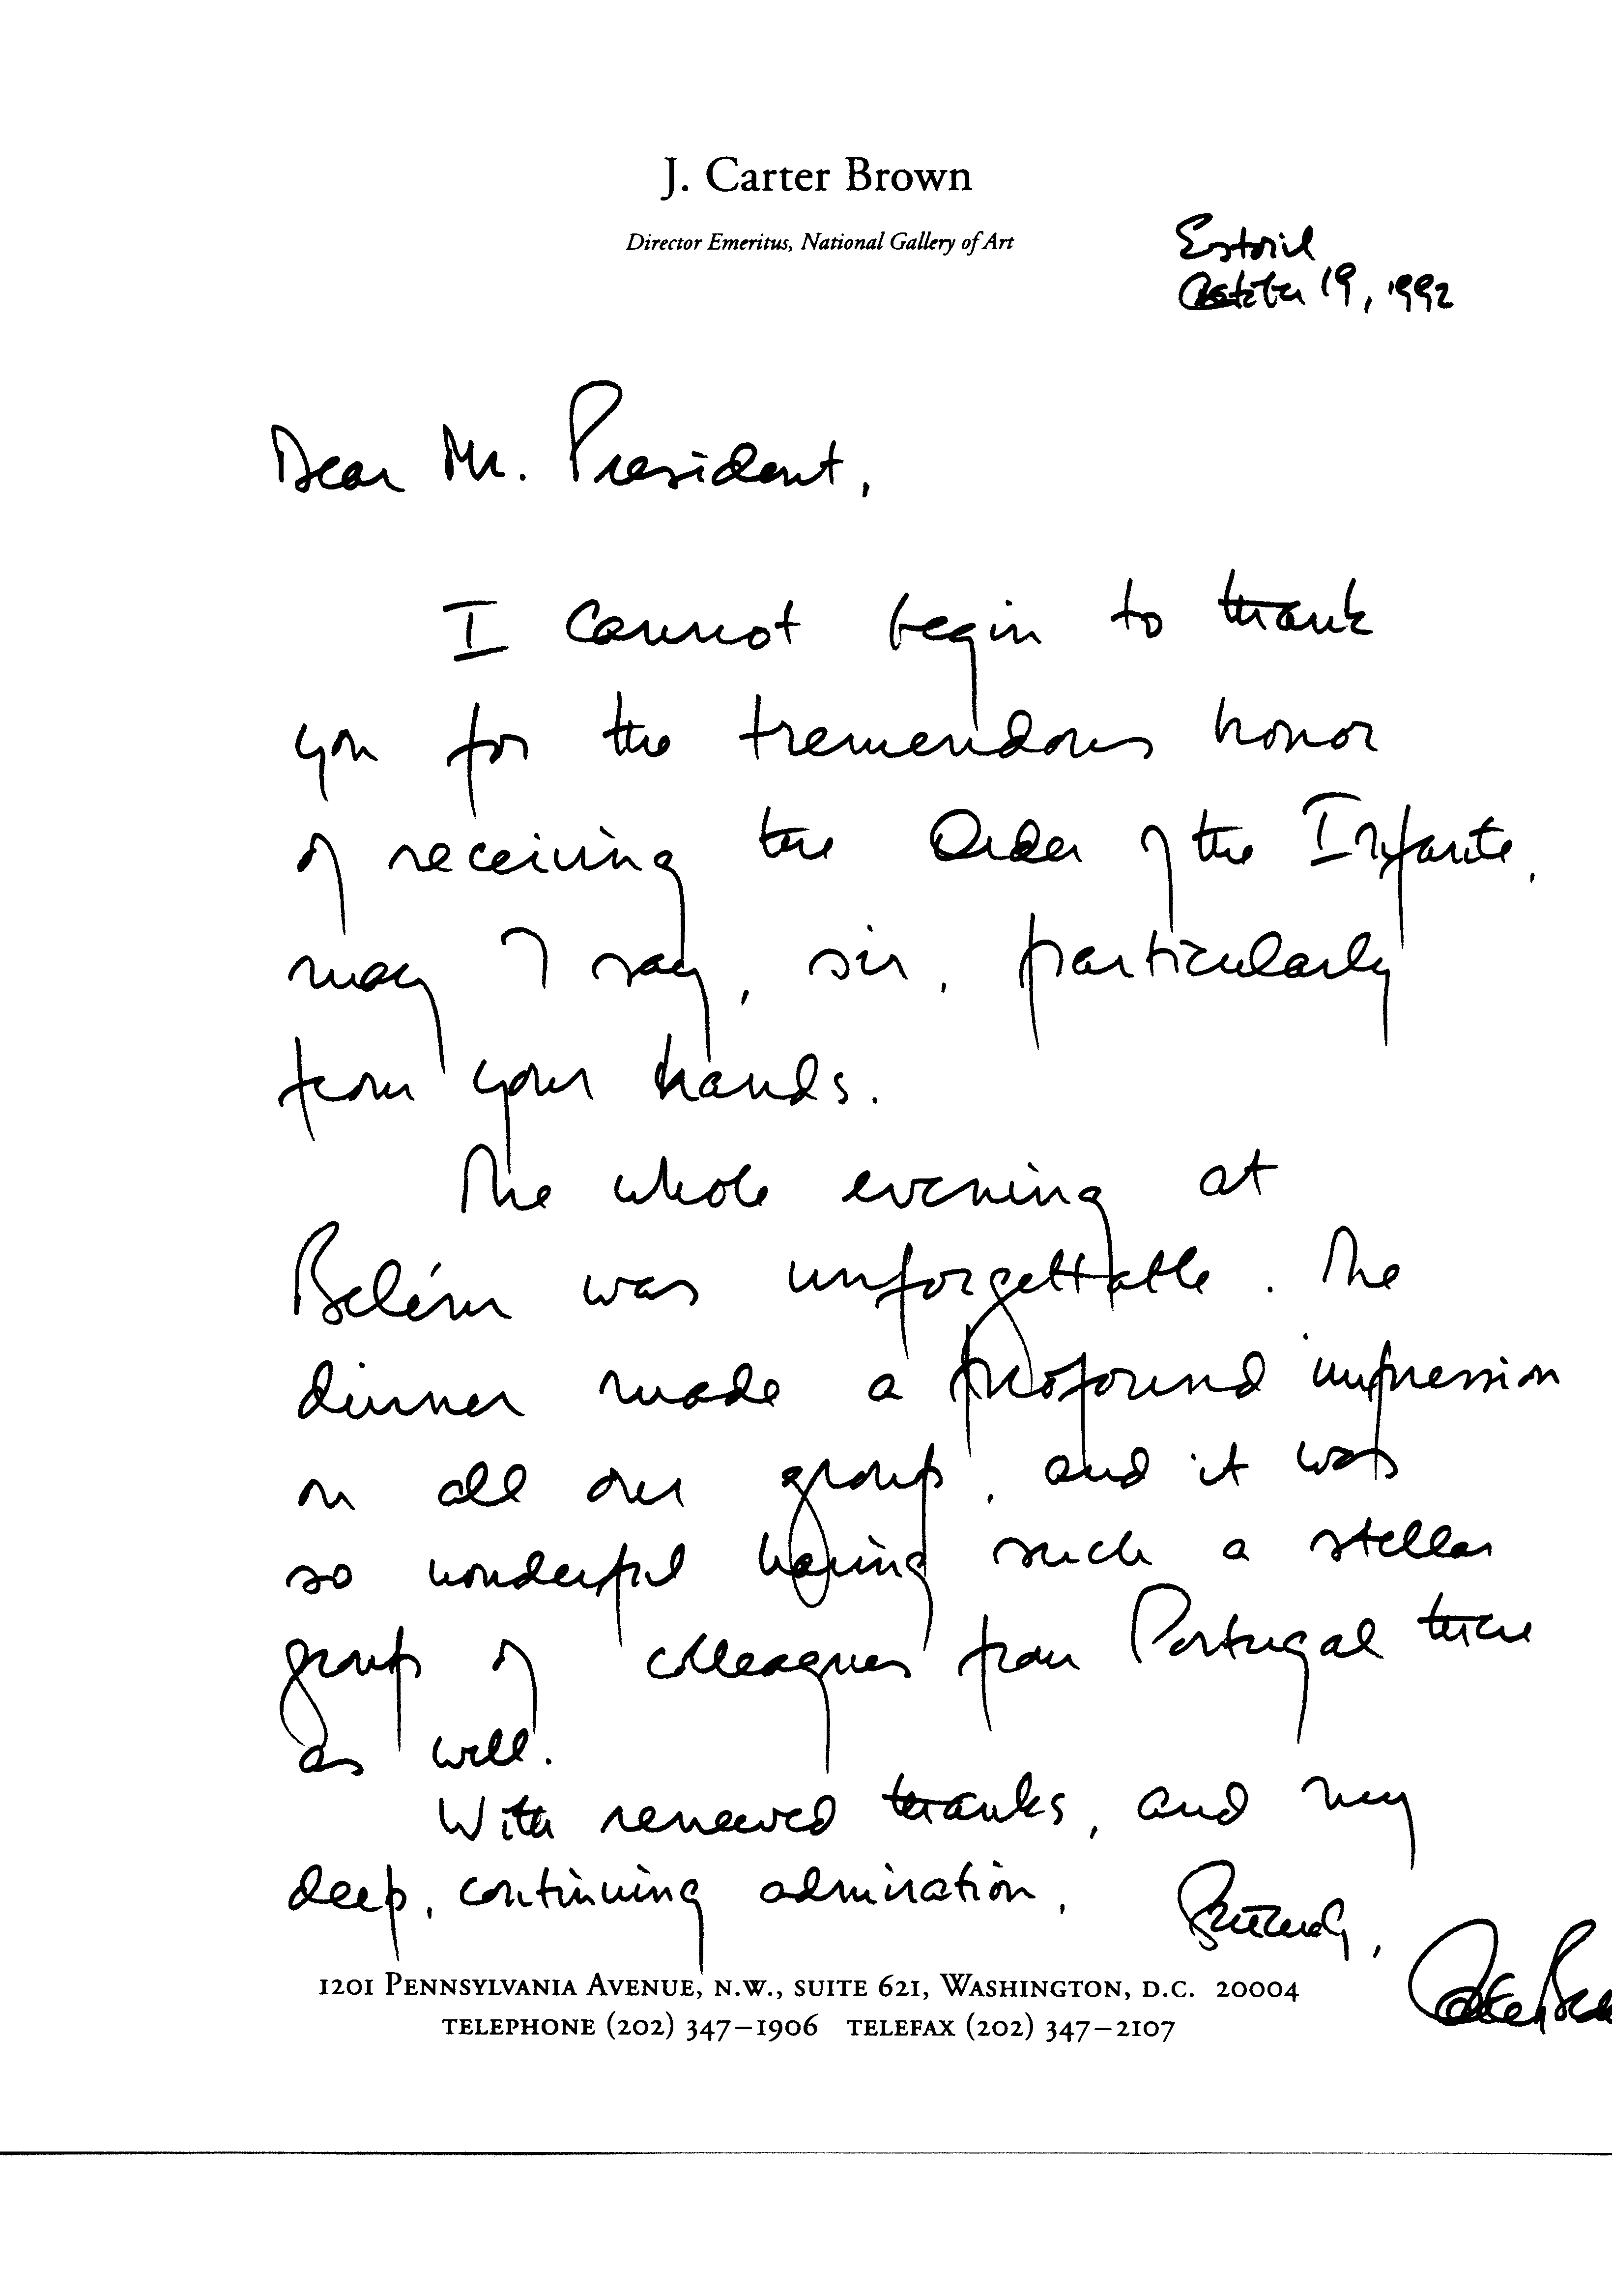 J. Carter Brown
Director Emeritus, National Gallery of Art
Estoril
October 19, 1992
Dear Mr. President,
I cannot begin to thank
you for the tremendous honor
of receiving the Order of the Infante,
may I say, sir, particularly
from your hands.
The whole evening at
Belém was unforgettable. The
dinner made a profound impression
on all our group, and it was
so wonderful having such a stellar
group of colleagues from Portugal there
as well.
With renewed thanks, and my
deep, continuing admiration,
Sincerely,
Carter Brown
1201 Pennsylvania Avenue, N.W., Suite 621, Washington, D.C. 20004
Telephone (202) 347–1906 Telefax (202) 347–2107